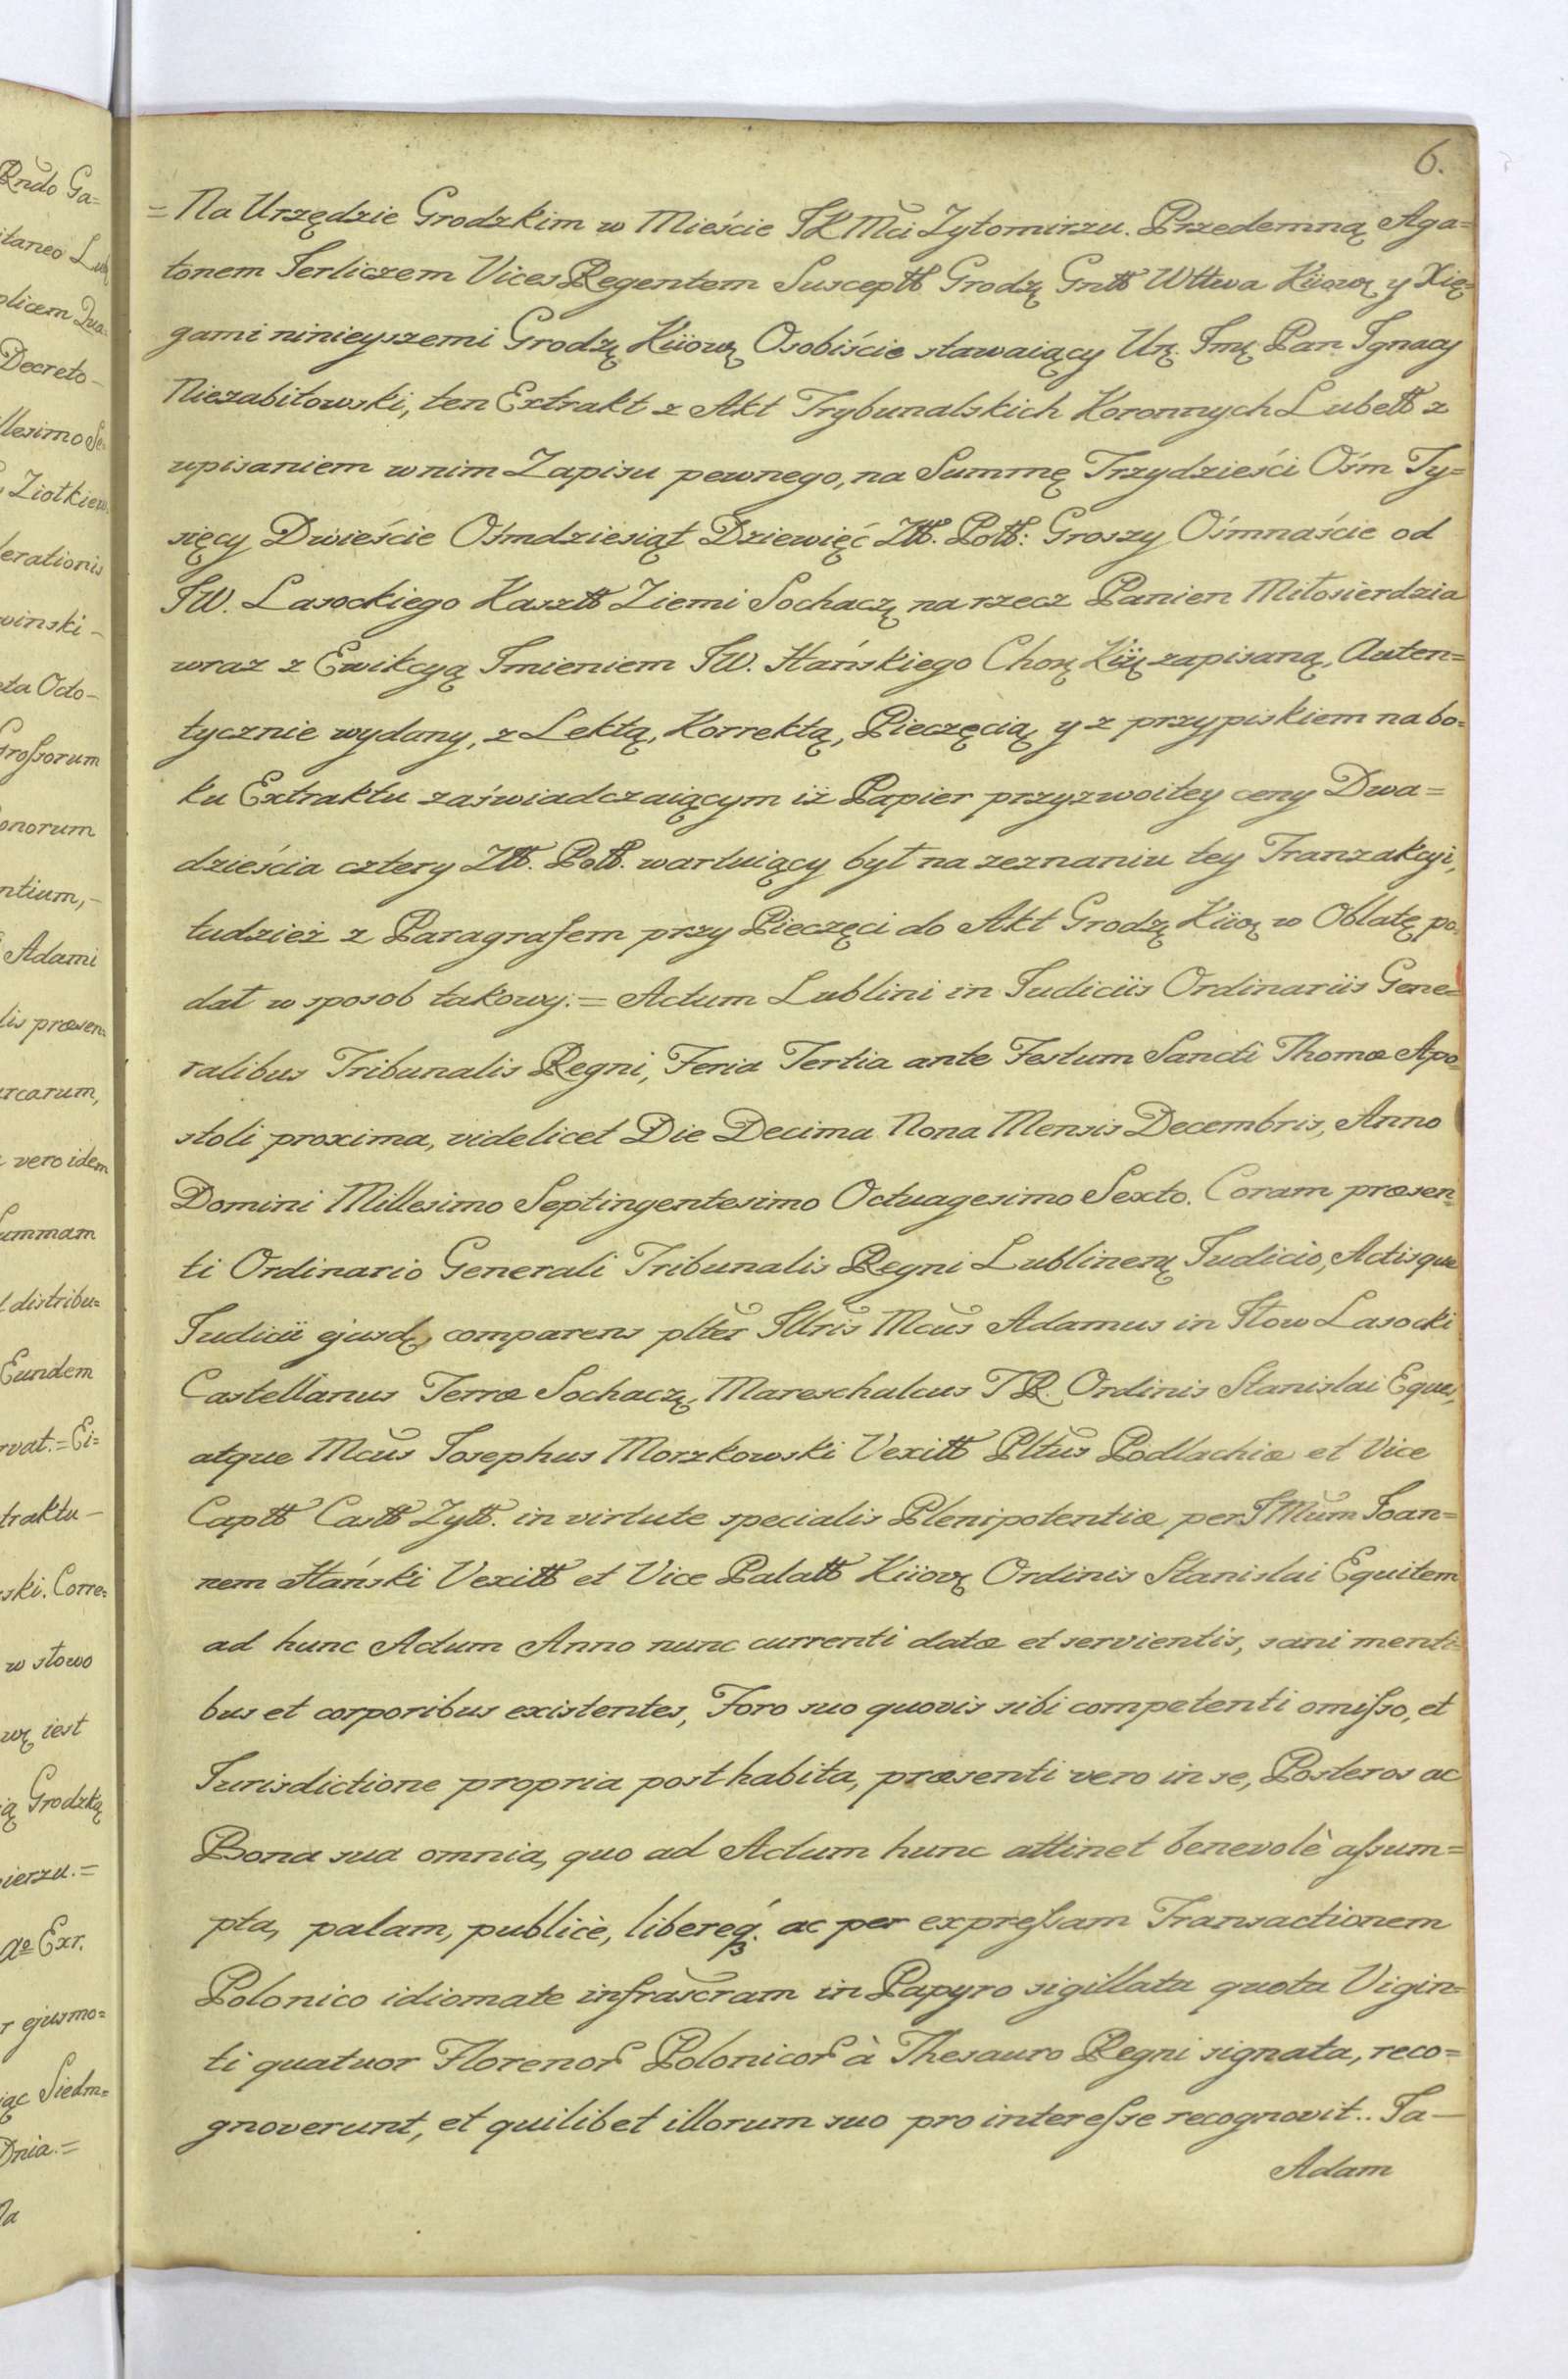 6.
= Na Urzędzie Grodzkim w Mieście JKMci Zytomirzu. Przedemną Aga=
tonem Jerliczem Vices Regentem Susceptt Grodz Gntt Wttwa Kiiow y Xię=
gami ninieyszemi Grodz Kiiow Osobiście stawaiący Ur. Jm Pan Jgnacy
Niezabitowski, ten Extrakt z Akt Trybunalskich Koronnych Lubell z
wpisaniem w nim Zapisu pewnego, na Summę Trzydzieści Ośm Ty=
sięcy Dwieście Ośmdziesiąt Dziewięć Ztt. Poll: Groszy Ośmnaście od
JW. Lasockiego Kasztt Ziemi Sochacz na rzecz Panien Miłosierdzia
wraz z Ewikcyą Jmieniem JW. Hańskiego Chor Kii zapisaną, Auten=
tycznie wydany, z Lektą, Korrektą, Pieczęcią y z przypiskiem na bo=
ku Extraktu zaświadczaiącym iż Papier przyzwoitey ceny Dwa=
dzieścia cztery Ztt. Poll. wartuiący był na zeznaniu tey Tranzakcyi,
tudzież z Paragrafem przy Pieczęci do Akt Grodz Kiio w Oblatę po=
dał w sposob takowy: = Actum Lublini in Judiciis Ordinariis Gene=
ralibus Tribunalis Regni, Feria Tertia ante Festum Sancti Thomæ Apo=
stoli proxima, videlicet Die Decima Nona Mensis Decembris, Anno
Domini Millesimo Septingentesimo Octuagesimo Sexto. Coram præsen=
ti Ordinario Generali Tribunalis Regni Lublinen Judicio, Actisque
Judicii ejusd comparens plter Jllris Mcus Adamus in Jłow Lasocki
Castellanus Terræ Sochacz, Mareschalcus T R. Ordinis Stanislai Eques,
atque Mcus Josephus Morzkowski Vexill Pltus Podlachiæ et Vice
Captt Castt Zytt. in virtute specialis Plenipotentiæ per JMum Joan=
nem Hański Vexill et Vice Palatt Kiiov Ordinis Stanislai Equitem
ad hunc Actum Anno nunc currenti datæ et servientis, sani menti=
bus et corporibus existentes, Foro suo quovis sibi competenti omisso, et
Jurisdictione propria posthabita, præsenti vero in se, Posteros ac
Bona sua omnia, quo ad Actum hunc attinet benevolè assum=
pta, palam, publicè, libereq. ac per expressam Transactionem
Polonico idiomate infrascram in Papyro sigillata quota Vigin=
ti quatuor Florenor Polonicor à Thesauro Regni signata, reco=
gnoverunt, et quilibet illorum suo pro interesse recognovit.. Ja—
Adam